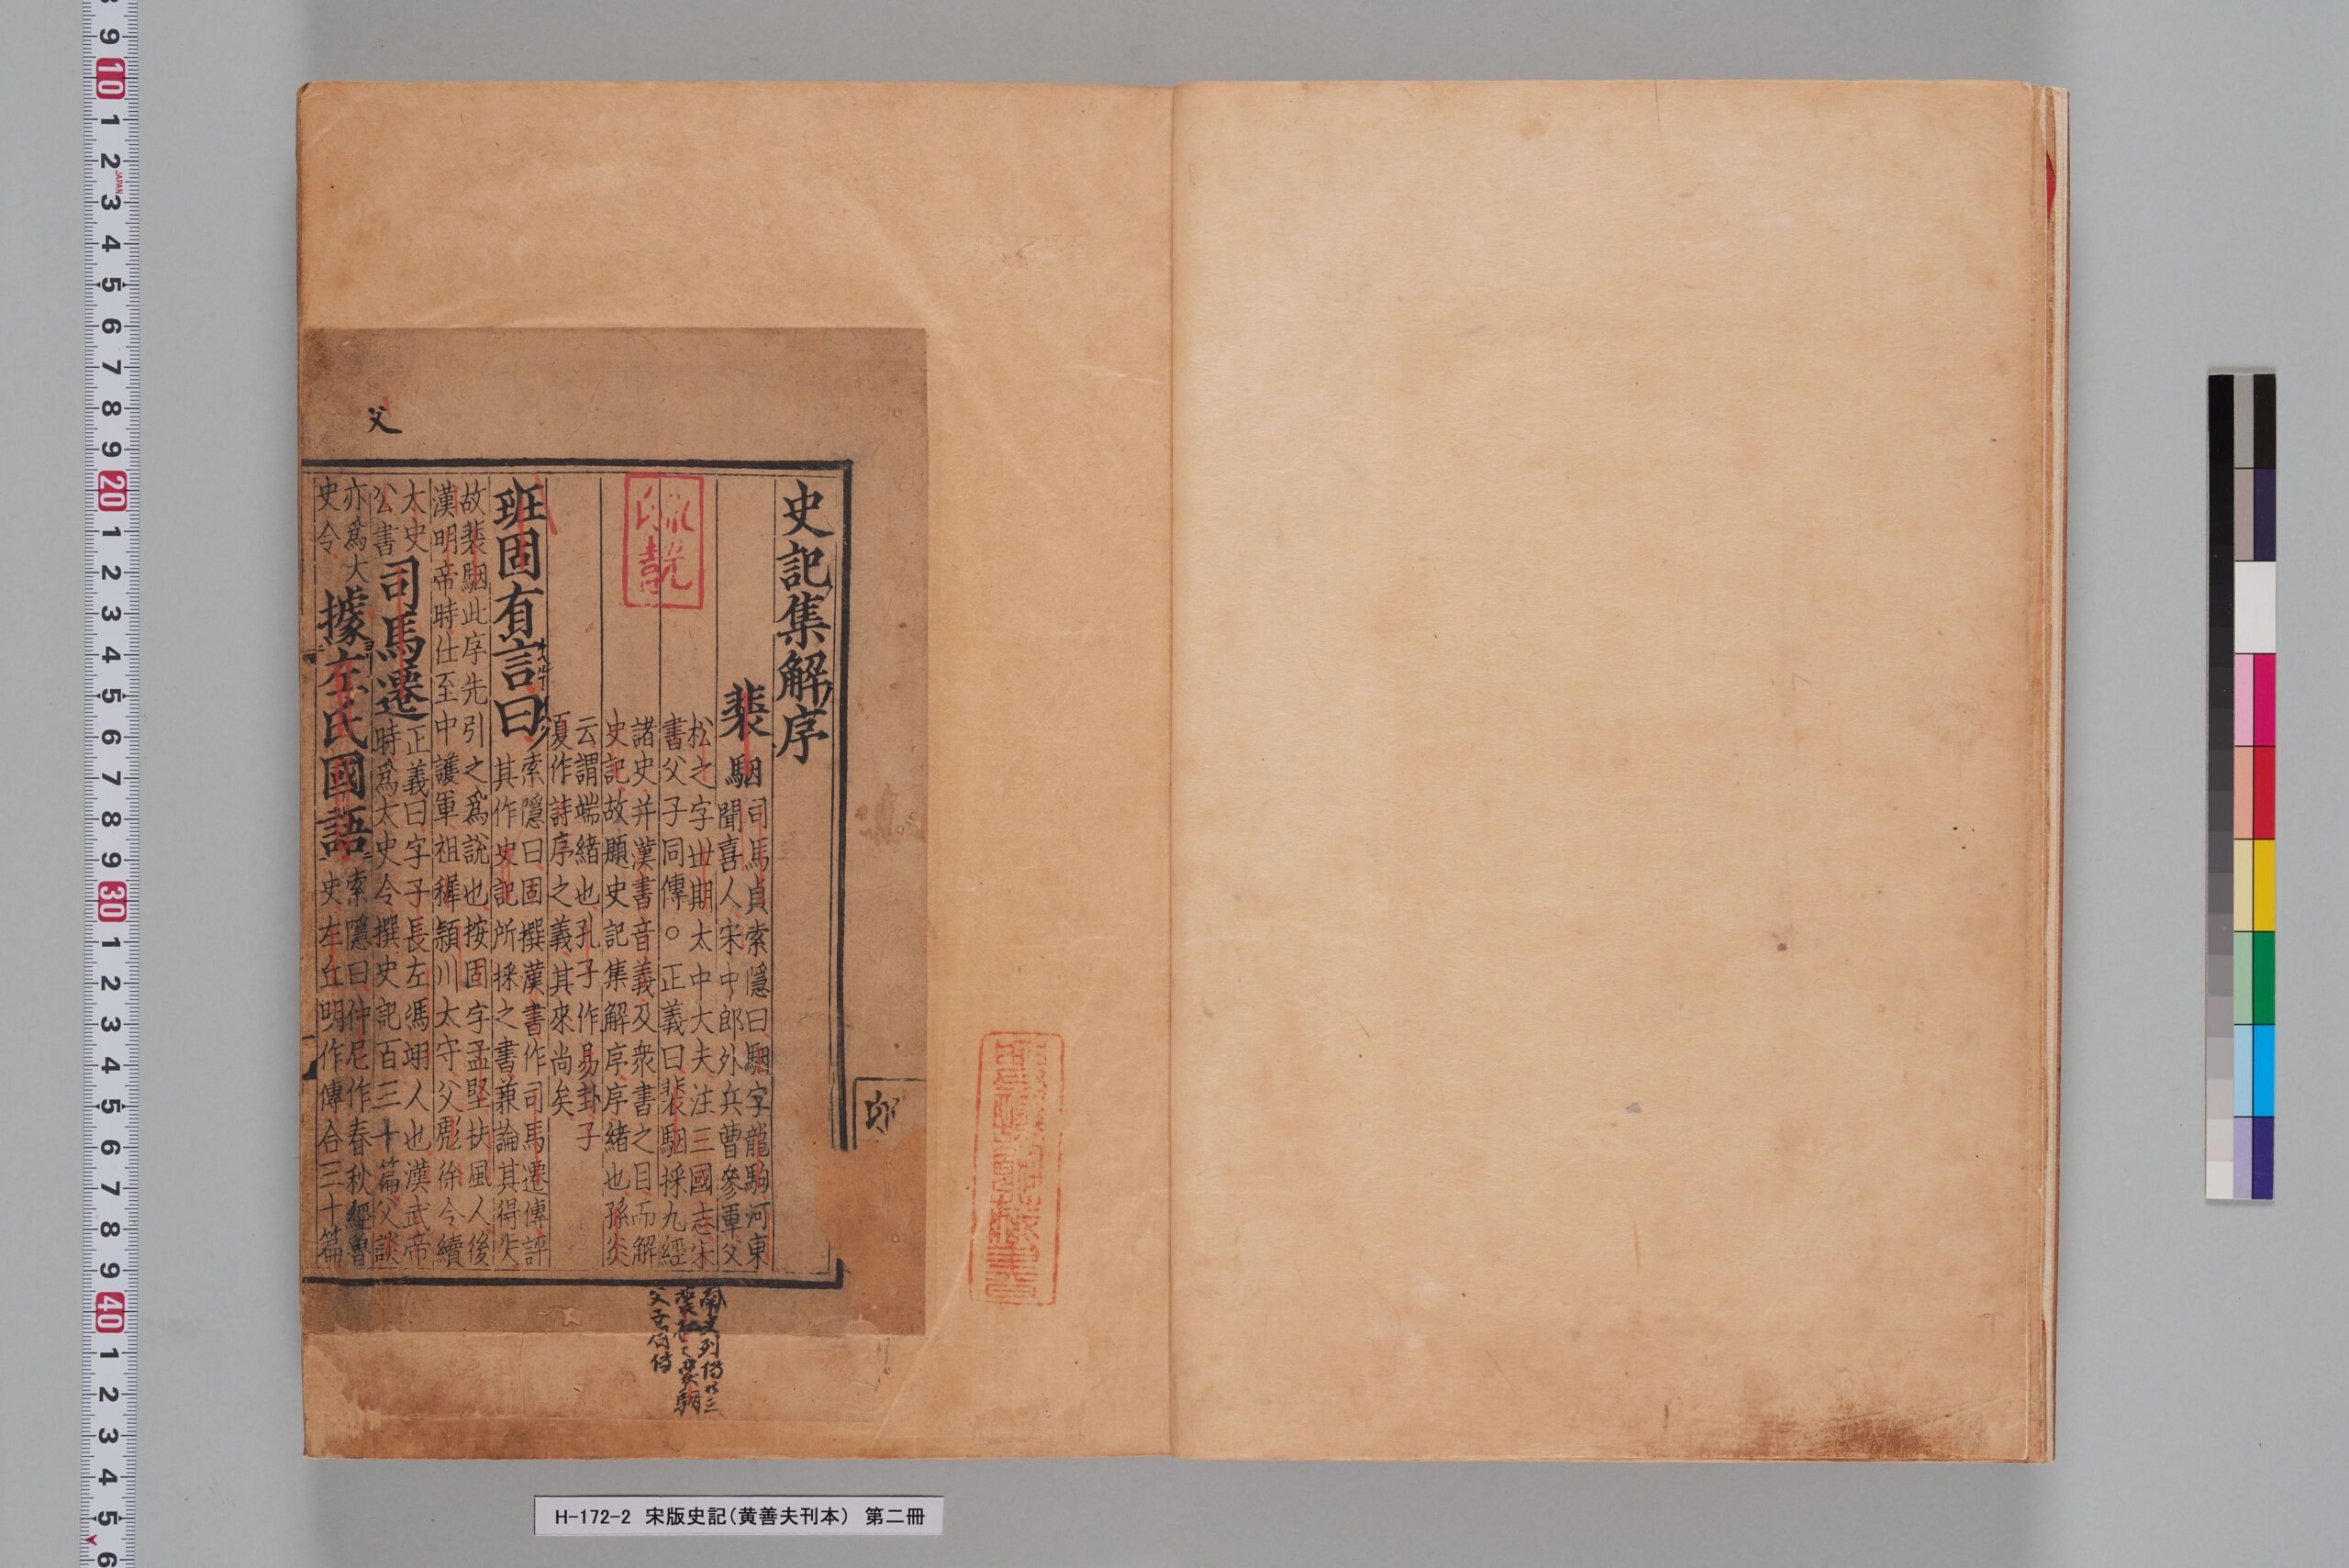 史記集解序
裴駰
司馬貞索隱曰駰字龍駒河東
聞喜人宋中郎外兵曹參軍父
松之字丗期太中大夫注三國志宋
書父子同傳○正義曰裴駰採九經
諸史并漢書音義及衆書之目而解
史記故題史記集解序序緒也孫炎
云謂端緒也孔子作易卦子
夏作詩序之義其來尚矣
班固有言曰
索隱曰固撰漢書作司馬遷傳評
其作史記所採之書兼論其得失
故裴駰此序先引之爲說也按固字孟堅扶風人後
漢明帝時仕至中護軍祖穉潁川太守父彪徐令續
太史
公書
司馬遷
正義曰字子長左馮翊人也漢武帝
時爲太史令撰史記百三十篇父談
亦爲大
史令
據左氏國語
索隱曰仲尼作春秋經魯
史左丘明作傳合三十篇
父
南史列傳廿三
裴松之裴駰
父子同傳
H-172-2 宋版史記(黄善夫刊本) 第二冊